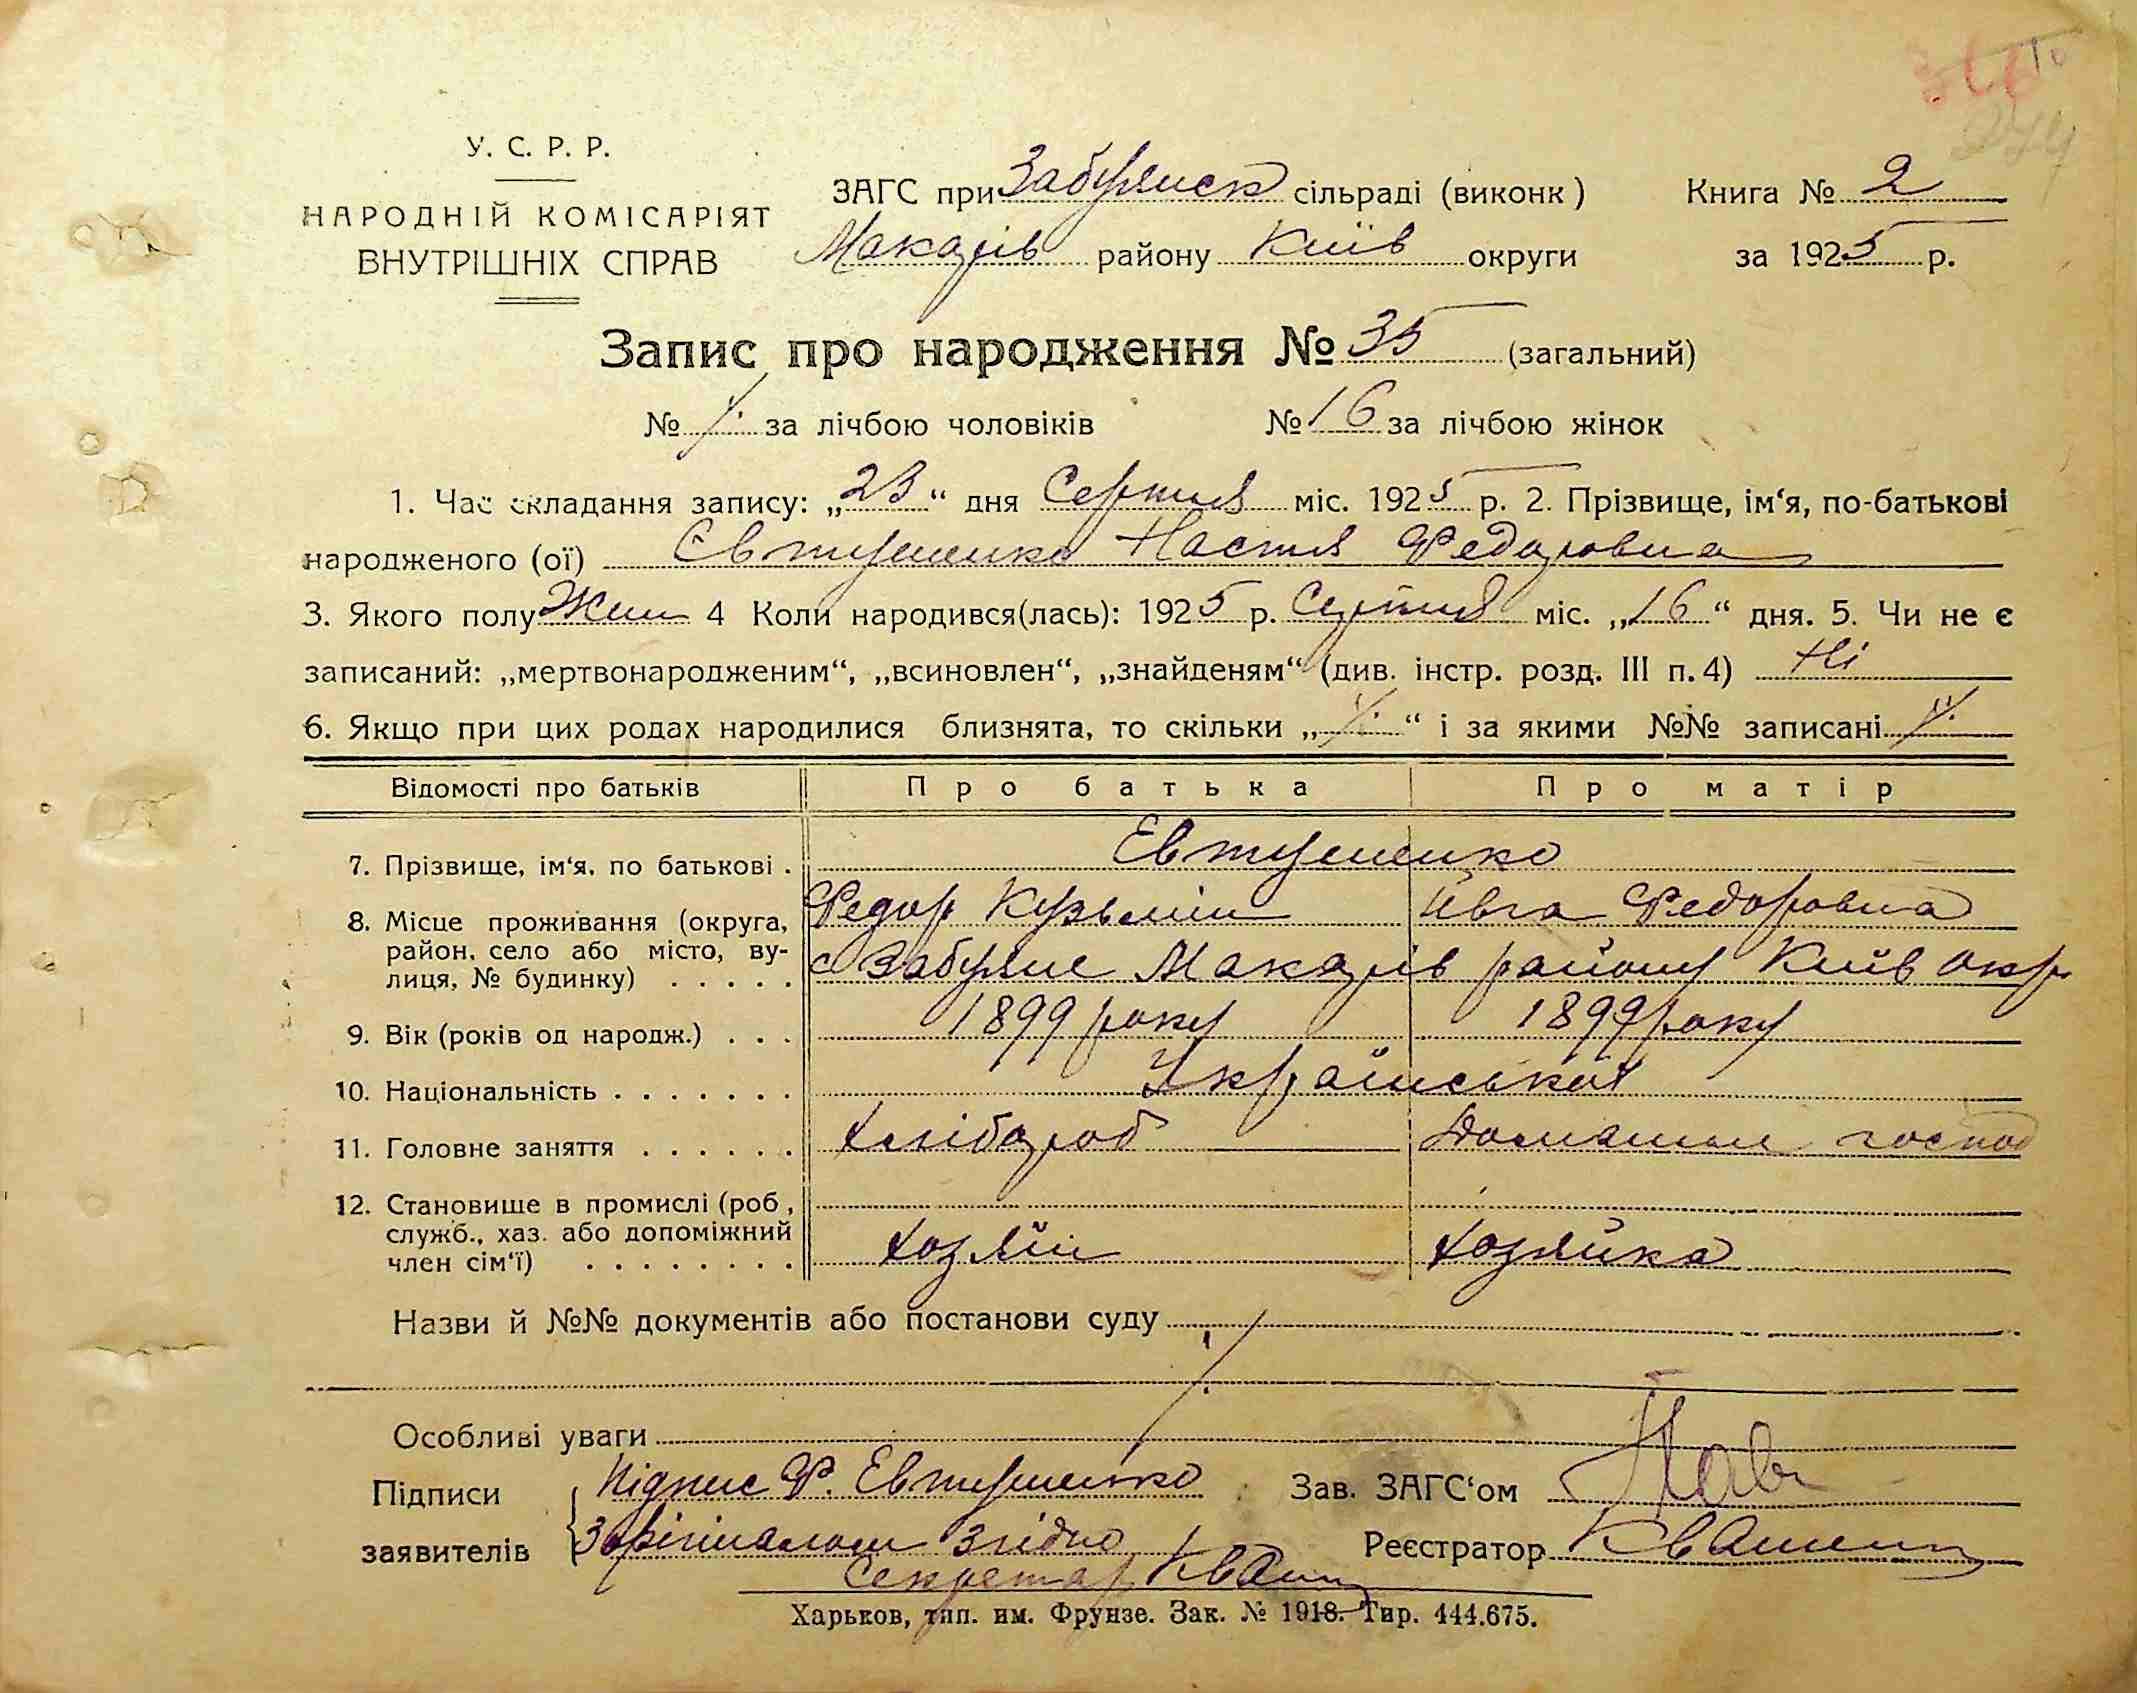 У. С. Р. Р.
НАРОДНІЙ КОМІСАРІЯТ
ВНУТРІШНІХ СПРАВ
ЗАГС при Забуянск сільраді (виконк)
Макарів району Київ округи
Книга № 2
за 1925 р.
Запис про народження № 35 (загальний)
№ за лічбою чоловіків № 16 за лічбою жінок
1. Час складання запису: „23“ дня Серпня міс. 1925 р. 2. Прізвище, ім‘я, по-батькові
народженого (ої) Євтушенко Настя Федоровна
3. Якого полу Жин 4 Коли народився(лась): 1925 р. Серпня міс. „16“ дня. 5. Чи не є
записаний: „мертвонародженим“, „всиновлен“, „знайденям“ (див. інстр. розд. III п. 4) Ні
6. Якщо при цих родах народилися близнята, то скільки „ “ і за якими №№ записані
Відомості про батьків Про батька Про матір
7. Прізвище, ім‘я, по батькові . Евтушенко
Федор Кузьмін Івга Федоровна
8. Місце проживання (округа,
район, село або місто, ву-
лиця, № будинку) . . . . . с Забуяне Макарів району Київ окр
9. Вік (років од народж.) . . . 1899 року 1899 року
10. Національність . . . . . . . Українська
11. Головне заняття . . . . . . Хлібороб Домашнє господ
12. Становище в промислі (роб,
служб., хаз. або допоміжний
член сім‘ї) . . . . . . . . Хозяїн Хозяйка
Назви й №№ документів або постанови суду
Особливі уваги
Підписи
заявителів
Підпис Ф. Евтушенко
З орігіналом згідно
Секретар Кваш
Зав. ЗАГС‘ом
Реєстратор Квашин
Харьков, тип. им. Фрунзе. Зак. № 1918. Тир. 444.675.